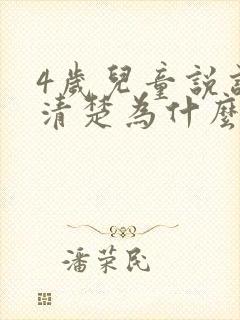 4歲兒童說
清楚為什麼
潘荣民